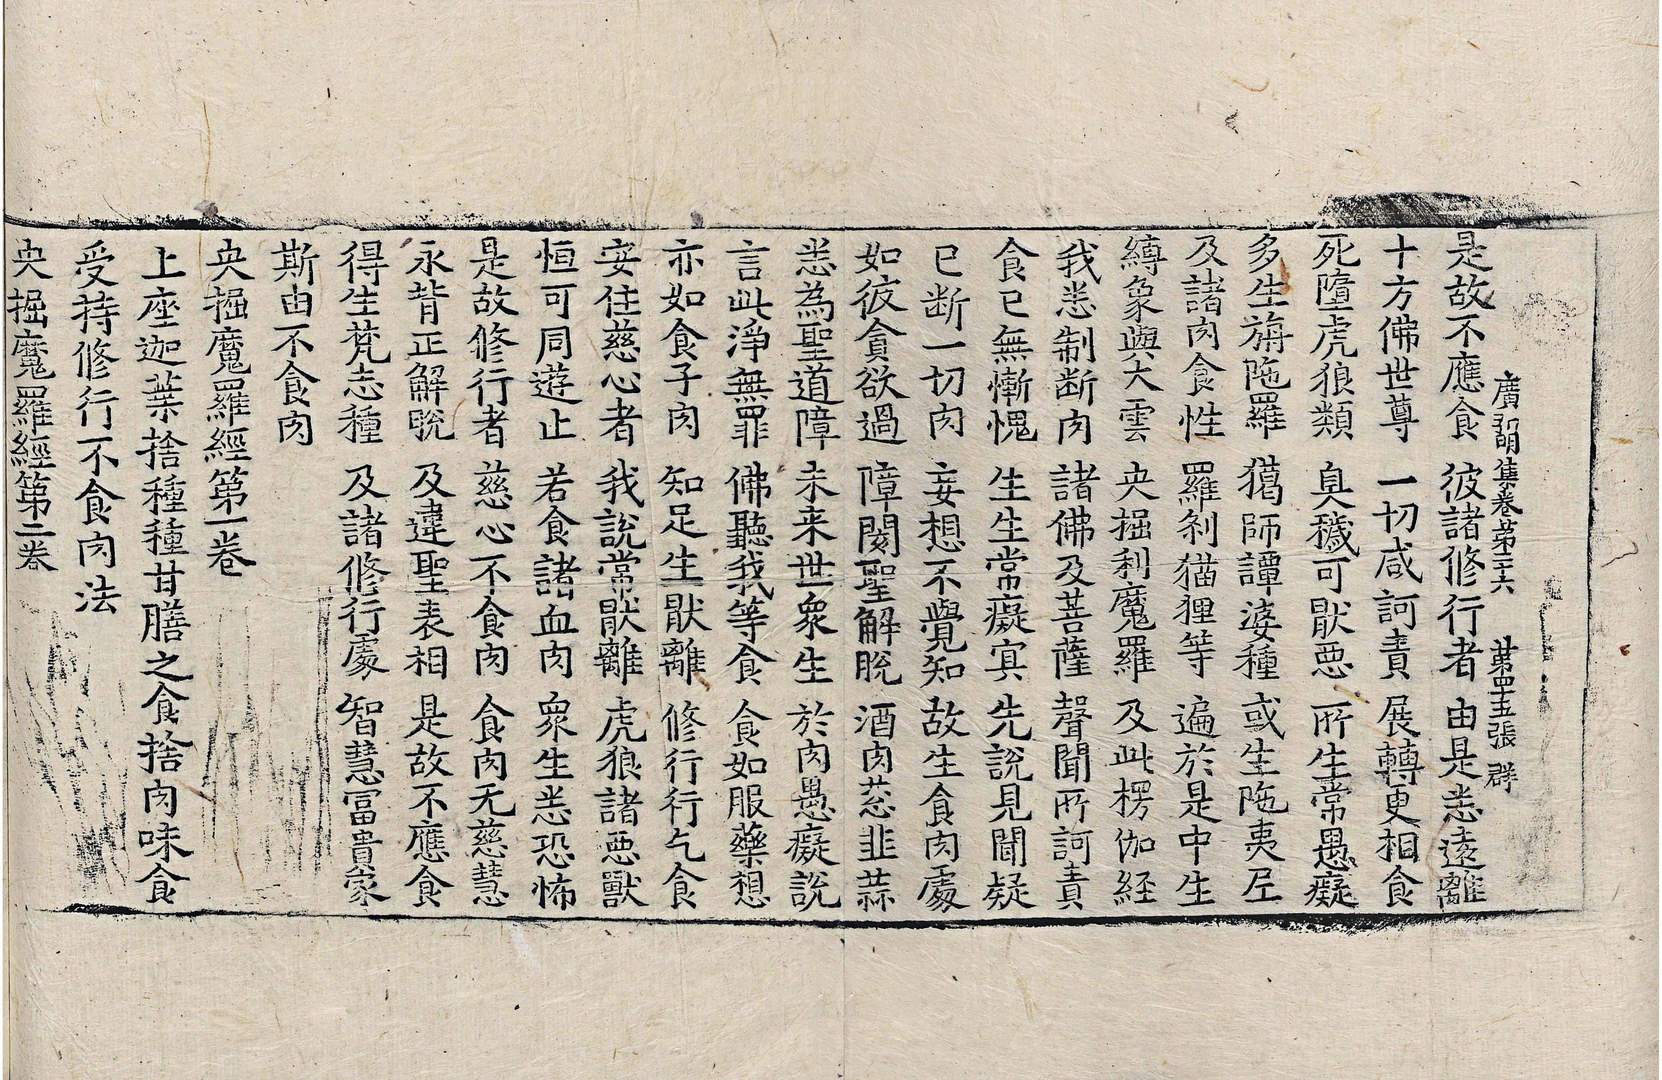 廣弘明集卷第二十六 第四十五張 群
是故不應食 彼諸修行者 由是悉遠離
十方佛世尊 一切咸訶責 展轉更相食
死墮虎狼類 臭穢可猒惡 所生常愚癡
多生旃陁羅 獦師譚婆種 或生陁夷尼
及諸肉食性 羅剎猫狸等 遍於是中生
縛象與大雲 央掘利魔羅 及此楞伽経
我悉制断肉 諸佛及菩薩 聲聞所訶責
食已無慚愧 生生常癡冥 先說見聞疑
已断一切肉 妄想不覺知 故生食肉處
如彼貪欲過 障閡聖解脫 酒肉葱韭蒜
悉為聖道障 未来世衆生 於肉愚癡說
言此淨無罪 佛聽我等食 食如服藥想
亦如食子肉 知足生猒離 修行行乞食
安住慈心者 我說常猒離 虎狼諸惡獸
恒可同遊止 若食諸血肉 衆生悉恐怖
是故修行者 慈心不食肉 食肉无慈慧
永背正解脫 及違聖表相 是故不應食
得生梵志種 及諸修行處 智慧冨貴家
斯由不食肉
央掘魔羅經第一卷
上座迦葉捨種種甘膳之食捨肉味食
受持修行不食肉法
央掘魔羅經第二卷